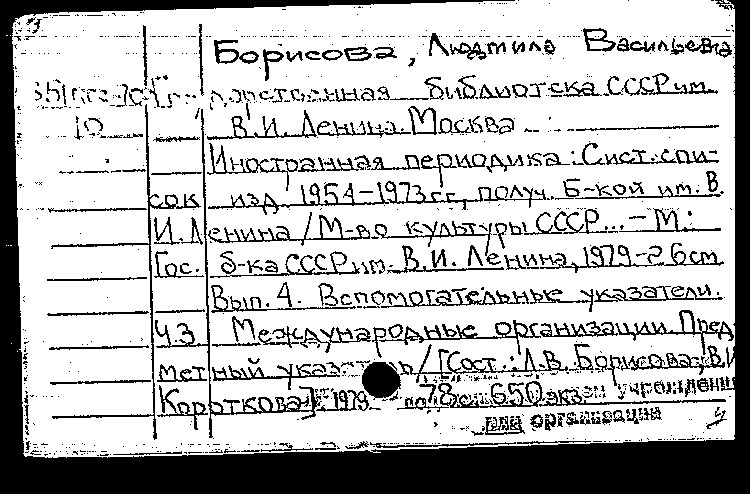 Борисова, Людмила Васильевна
Государственная библиотека СССР им.
10 В.И. Ленина. Москва
Иностранная периодика: Сист. спи-
сок изд. 1954-1973 гг., получ. Б-кой им. В.
И. Ленина / М-во культуры СССР... - М.:
Гос. б-ка СССР им. В. И. Ленина, 1979.- 26 см
Вып. 4. Вспомогательные указатели.
Ч.3 Международные организации. Пред-
метный указатель / [Сост.: Л.В. Борисова, В.И
Короткова]. 1979 78 с. 650 экз. учреждения
или организации